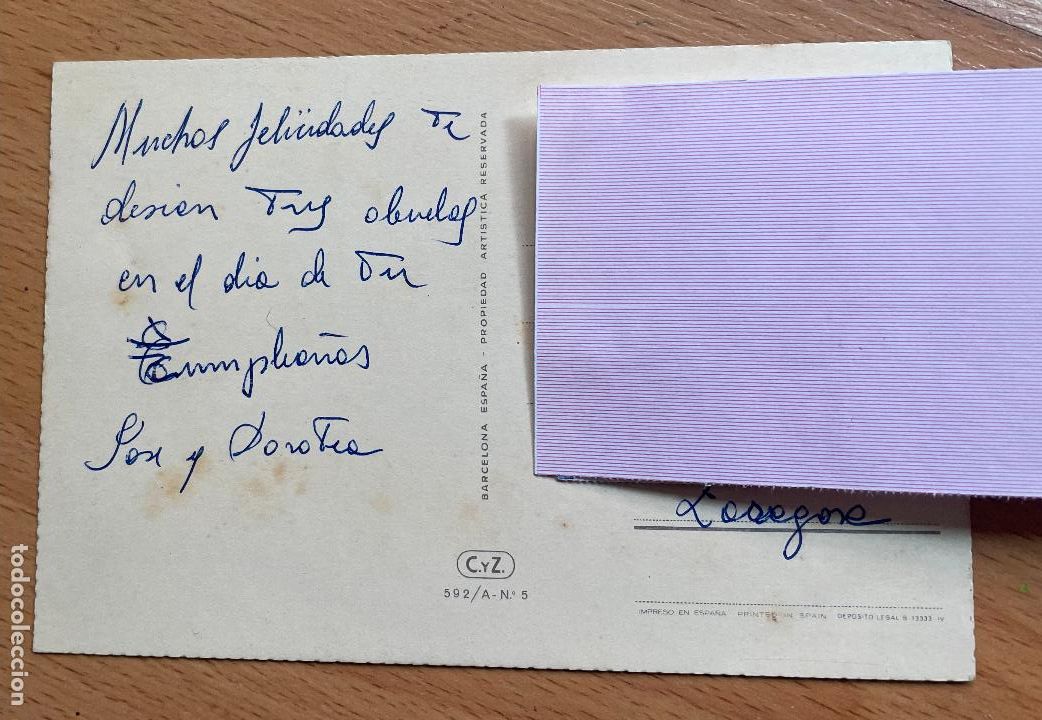 Muchas felicidades te
desean tus abuelos
en el dia de tu
Cumpleaños
Jose y Dorotea
BARCELONA ESPAÑA - PROPIEDAD ARTISTICA RESERVADA
Zaragoza
C.YZ.
592/A-N.º 5
IMPRESO EN ESPAÑA PRINTED IN SPAIN DEPOSITO LEGAL B. 13333-IV
todocoleccion